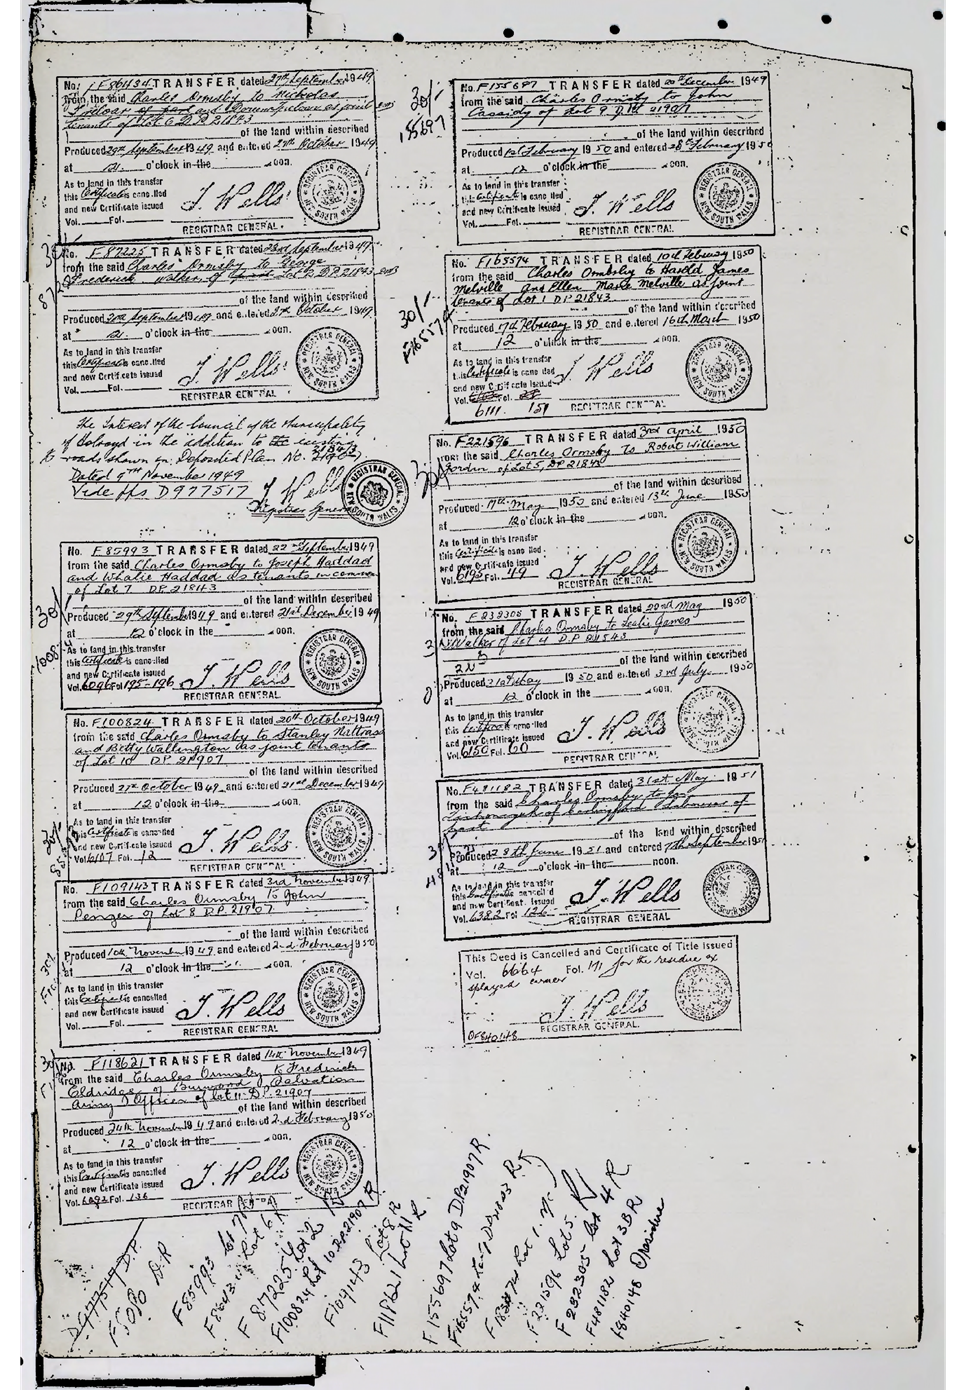 No. F86434 TRANSFER dated 27th September 1949
from the said Charles Ormsby to Nicholas
as joint
tenants of Lot 6 D.P. 21843
of the land within described
Produced 29th September 1949 and entered 27th October 1949
at 12 o'clock in the noon.
As to land in this transfer
this Certificate is cancelled
and new Certificate issued
Vol. Fol.
J. Wells
REGISTRAR GENERAL.
REGISTRAR GENERAL NEW SOUTH WALES
No. F87225 TRANSFER dated 23rd September 1949
from the said Charles Ormsby to George
Frederick Walker of Lot 2 D.P. 21843
of the land within described
Produced 30th September 1949 and entered 27th October 1949
at 12 o'clock in the noon.
As to land in this transfer
this Certificate is cancelled
and new Certificate issued
Vol. Fol.
J. Wells
REGISTRAR GENERAL
The Interest of the Council of the Municipality
of Holroyd in the addition to the existing
roads shown in Deposited Plan No.
Dated 9th November 1949
Vide Apps. D977517
J. Wells
Registrar General
No. F85993 TRANSFER dated 22nd September 1949
from the said Charles Ormsby to Joseph Haddad
and Whalie Haddad as tenants in common
of Lot 7 D.P. 21843
of the land within described
Produced 29th September 1949 and entered 21st December 1949
at 12 o'clock in the noon.
As to land in this transfer
this Certificate is cancelled
and new Certificate issued
Vol. 6096 Fol 195-196
J. Wells
REGISTRAR GENERAL
No. F100824 TRANSFER dated 20th October 1949
from the said Charles Ormsby to Stanley Nattrass
and Betty Wallington as joint tenants
of Lot 10 D.P. 21907
of the land within described
Produced 27th October 1949 and entered 21st December 1949
at 12 o'clock in the noon.
As to land in this transfer
this Certificate is cancelled
and new Certificate issued
Vol. 6107 Fol. 12
J. Wells
REGISTRAR GENERAL
No. F109143 TRANSFER dated 3rd November 1949
from the said Charles Ormsby to John
Penzer of Lot 8 D.P. 21907
of the land within described
Produced 10th November 1949 and entered 2nd February 1950
at 12 o'clock in the noon.
As to land in this transfer
this Certificate is cancelled
and new Certificate issued
Vol. Fol.
J. Wells
REGISTRAR GENERAL
No. F118621 TRANSFER dated 14th November 1949
from the said Charles Ormsby to Frederick
Eldridge of Burwood Salvation
Army Officer of Lot 11 D.P. 21907
of the land within described
Produced 24th November 1949 and entered 2nd February 1950
at 12 o'clock in the noon.
As to land in this transfer
this Certificate is cancelled
and new Certificate issued
Vol. 6092 Fol. 136
J. Wells
REGISTRAR GENERAL
30/-
155697
No. F155697 TRANSFER dated 20th December 1949
from the said Charles Ormsby to John
Cassidy of Lot 9 D.P. 21907
of the land within described
Produced 1st February 1950 and entered 28th February 1950
at 12 o'clock in the noon.
As to land in this transfer
this Certificate is cancelled
and new Certificate issued
Vol. Fol.
J. Wells
REGISTRAR GENERAL
30/-
F165574
No. F165574 TRANSFER dated 10th February 1950
from the said Charles Ormsby to Harold James
Melville and Ellen Marie Melville as joint
tenants of Lot 1 D.P. 21843
of the land within described
Produced 17th February 1950 and entered 16th March 1950
at 12 o'clock in the noon.
As to land in this transfer
this Certificate is cancelled
and new Certificate issued
6111. 151
J. Wells
REGISTRAR GENERAL
No. F221596 TRANSFER dated 3rd April 1950
from the said Charles Ormsby to Robert William
Gordon of Lot 5, D.P. 21843
of the land within described
Produced 17th May 1950 and entered 13th June 1950
at 12 o'clock in the noon.
As to land in this transfer
this Certificate is cancelled
and new Certificate issued
Vol. 6195 Fol. 49
J. Wells
REGISTRAR GENERAL
No. F232305 TRANSFER dated 22nd May 1950
from the said Charles Ormsby to Leslie James
Walker of Lot 4 D.P. 21843
of the land within described
Produced 31st May 1950 and entered 3rd July 1950
at 12 o'clock in the noon.
As to land in this transfer
this Certificate is cancelled
and new Certificate issued
Vol. 6150 Fol. 60
J. Wells
REGISTRAR GENERAL
No. F481182 TRANSFER dated 31st May 1951
from the said Charles Ormsby to
of Carlingford Labourer of
part
of the land within described
Produced 28th June 1951 and entered 7th September 1951
at 12 o'clock in the noon.
As to land in this transfer
this Certificate is cancelled
and new Certificate issued
Vol. 6382 Fol 126
J. Wells
REGISTRAR GENERAL
This Deed is Cancelled and Certificate of Title Issued
Vol. 6664 Fol. 171 for the residue ex
splayed corner
J. Wells
REGISTRAR GENERAL.
F840148
D977517 D.P.
F85993 Lot 7 R
F86434 Lot 6 R
F87225 Lot 2 R
F100824 Lot 10 D.P. 21907 R
F109143 Lot 8 R
F118621 Lot 11 R
F155697 Lot 9 DP21907 R
F221596 Lot 5 R
F232305 Lot 4 R
F481182 Lot 3B R
F840148 Residue